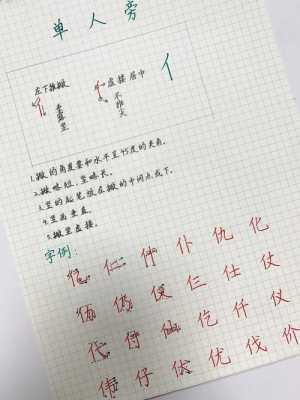 单人旁
左下撇撇
垂露竖
虚接居中
不带尖
亻
1.撇的角度要和水平呈45度的夹角。
2.撇略短,竖略长。
3.竖的起笔放在撇的中间点或下。
4.竖画垂直。
5.撇竖虚接。
字例:
仁 什 仆 仇 化
仍 仅 仨 仕 仗
代 付 仙 仡 仟 仪
伟 仔 伏 优 伐 价